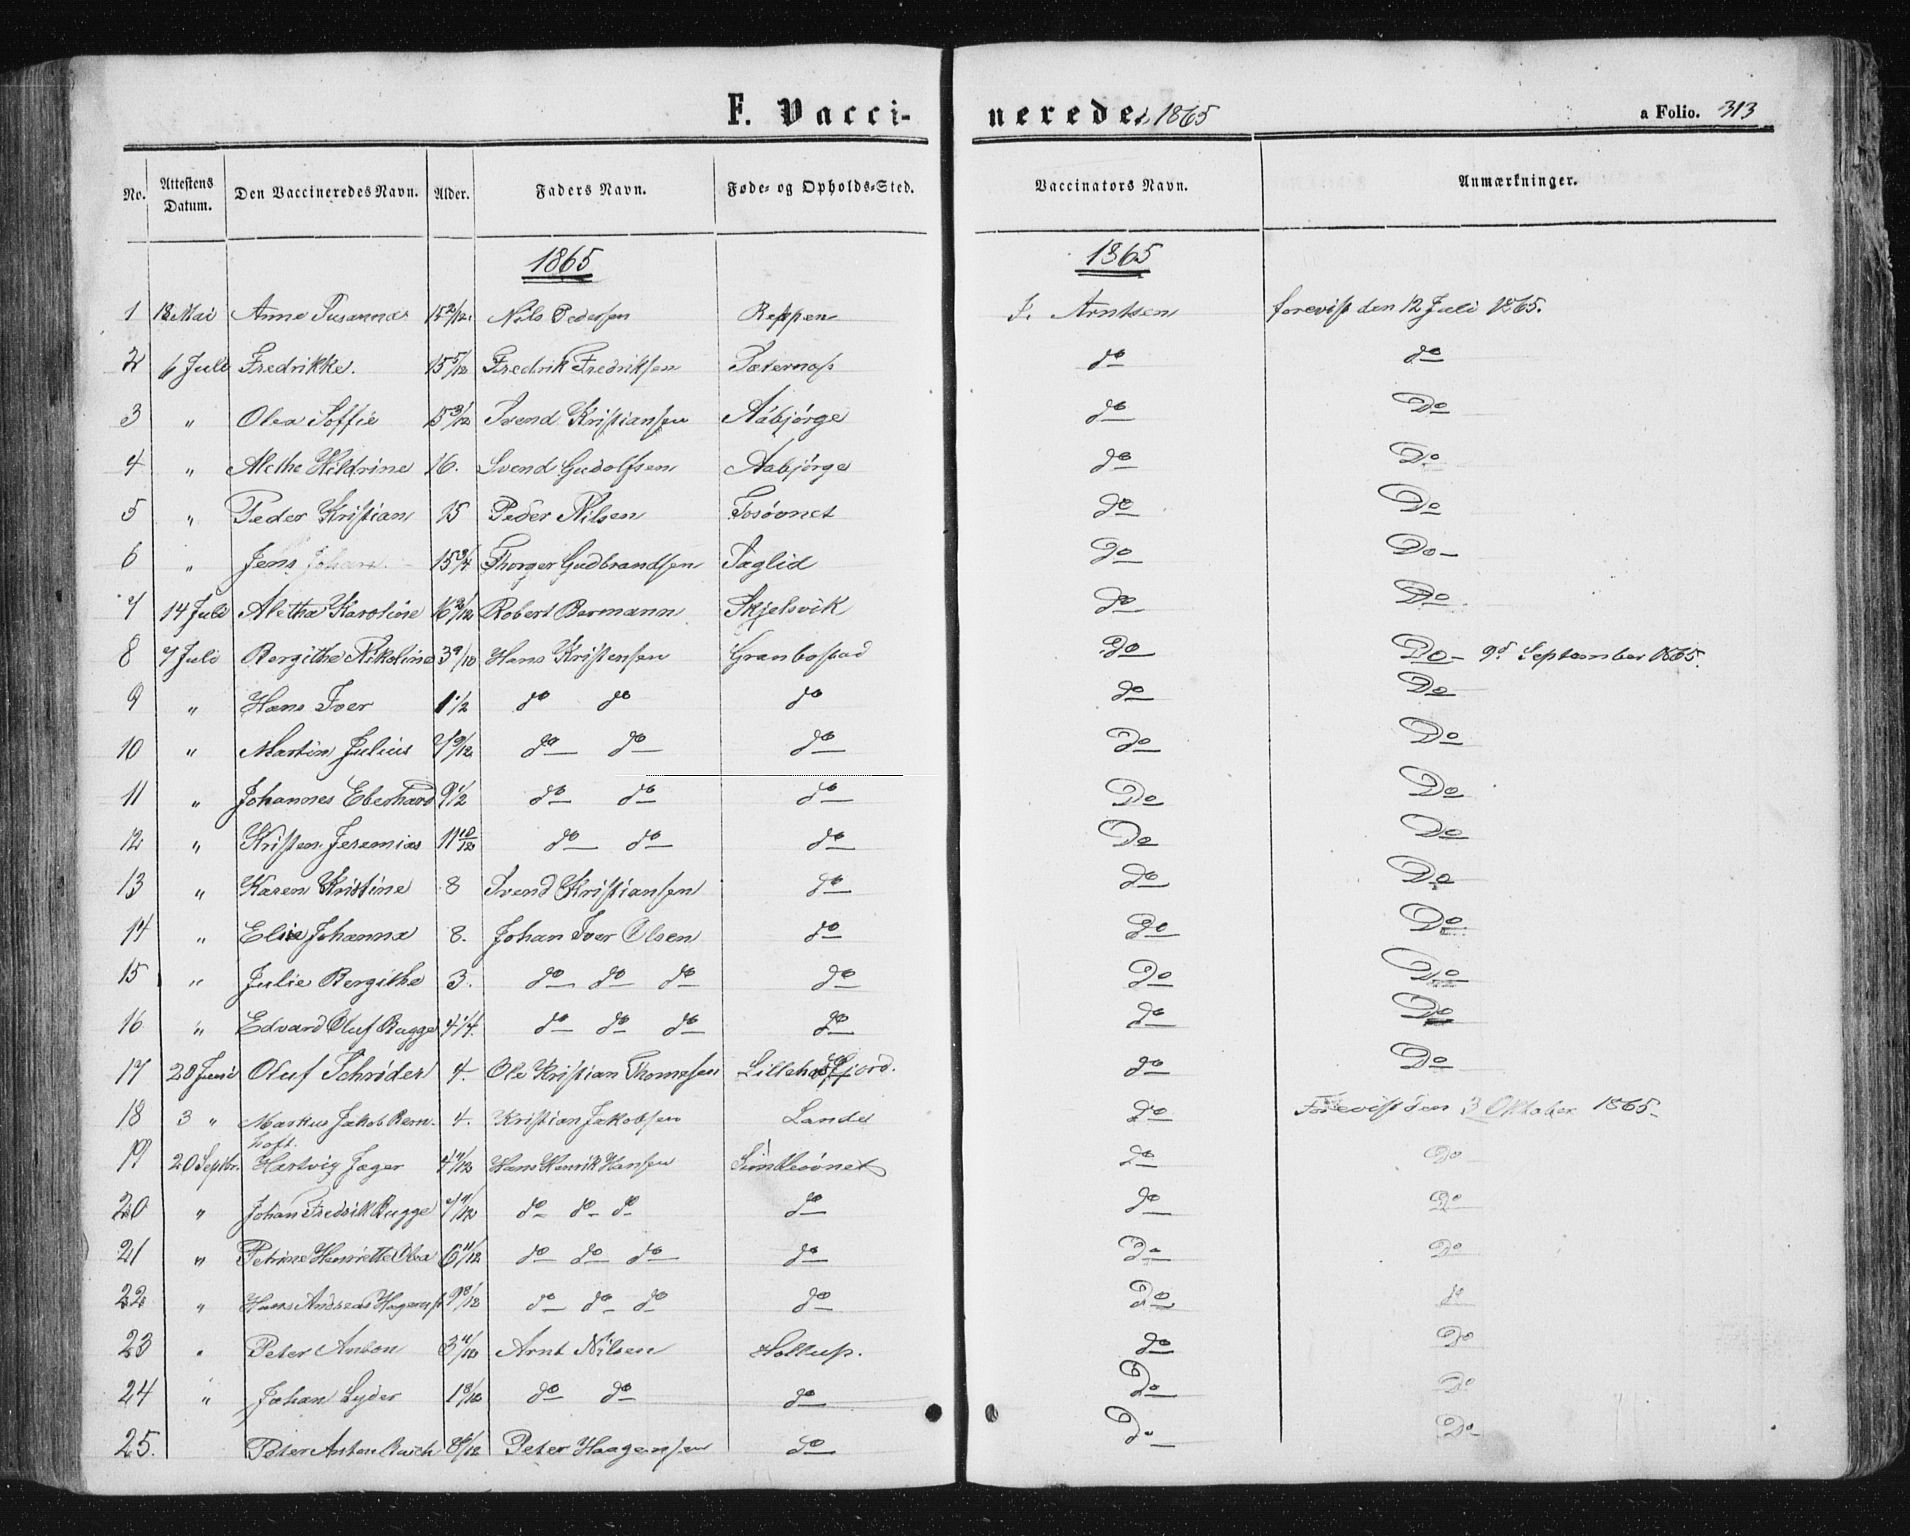 F. Vaccinerede. 1865 a Folio. 313
No. Attestens Datum. Den Vaccineredes Navn. Alder. Faders Navn. Føde- og Opholds-Sted. Vaccinators Navn. Anmærkninger.
1865 1865
1 13 Mai Anne Susanna 15 2/12 Nils Pedersen Reppen Arntsen forevist den 12 Juli 1865.
2 6 Juli Fredrikke. 15 5/12 Fredrik Fredriksen Sæternæs do do
3 " Olea Soffie 15 3/12 Svend Kristiansen Aabjørge do Do
4 " Alethe Hildrine 16. Svend Gudolfsen Aabjørge do Do
5 " Peder Kristian 15 Peder Nilsen Tosøvnet do Do
6 " Jens Johan 15 3/4 Thorger Gudbrandsen Saglid do Do
7 14 Juli Aletha Karoline 16 2/12 Robert Bermann Skjelsvik do Do
8 7 Juli Bergithe Nikoline 3 9/10 Hans Kristensen Granbostad Do Do 9d September 1865.
9 " Hans Iver 1 1/2 do do do do Do
10 " Martin Julius 7 9/12 do do do Do Do
11 " Johannes Eberhard 9 1/2 do do do Do Do
12 " Kristen Jeremias 11 10/12 do do do Do Do
13 " Karen Kristine 8 Svend Kristiansen do do Do
14 " Elise Johanna 8. Johan Iver Olsen do do Do
15 " Julie Bergithe 3. do do do do Do Do
16 " Edvard Oluf Bugge 4 1/4. do do do do do Do
17 20 Juni Oluf Schrøder 4. Ole Kristian Thomesen do Do
18 3 " Markus Jakob Bern- 4. Kristian Jakobsen Lande do Forevist den 3 Oktober 1865.
hoft.
19 20 Septbr. Hartvig Jæger 4 4/12 Hans Henrik Hansen Simlesøvnet do Do
20 " Johan Fredrik Bugge 7 4/12 do do do do do Do
21 " Petrine Henriette Olea 6 11/12 do do do do Do Do
22 " Hans Andreas 9 8/12 do do do do Do do
23 " Peter Anton 3 11/12 Arnt Nilsen Hollup. do Do
24 " Johan Lyder 1 8/12 do do do Do Do
25. Peter Anton 8/12 Peter Haagensen do Do Do